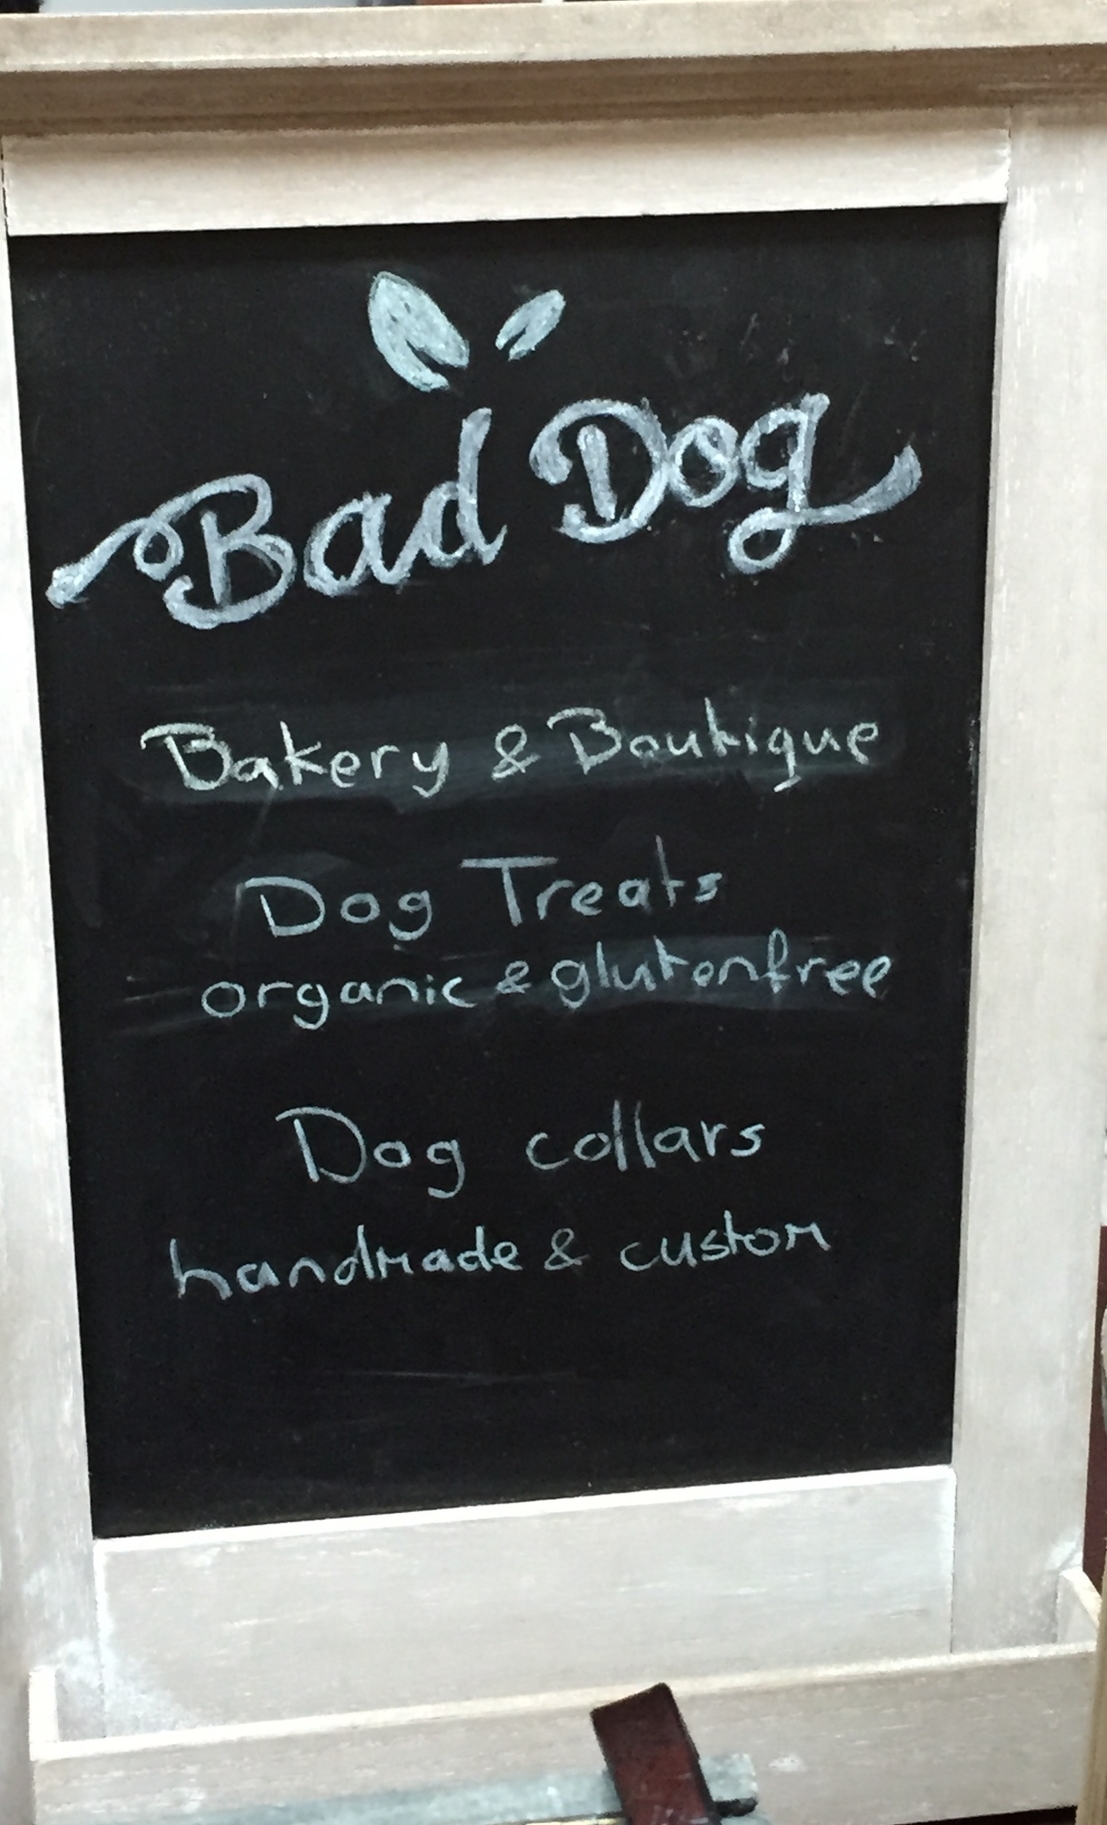 Bad Dog
Bakery & Boutique
Dog Treats
organic & glutenfree
Dog collars
handmade & custom